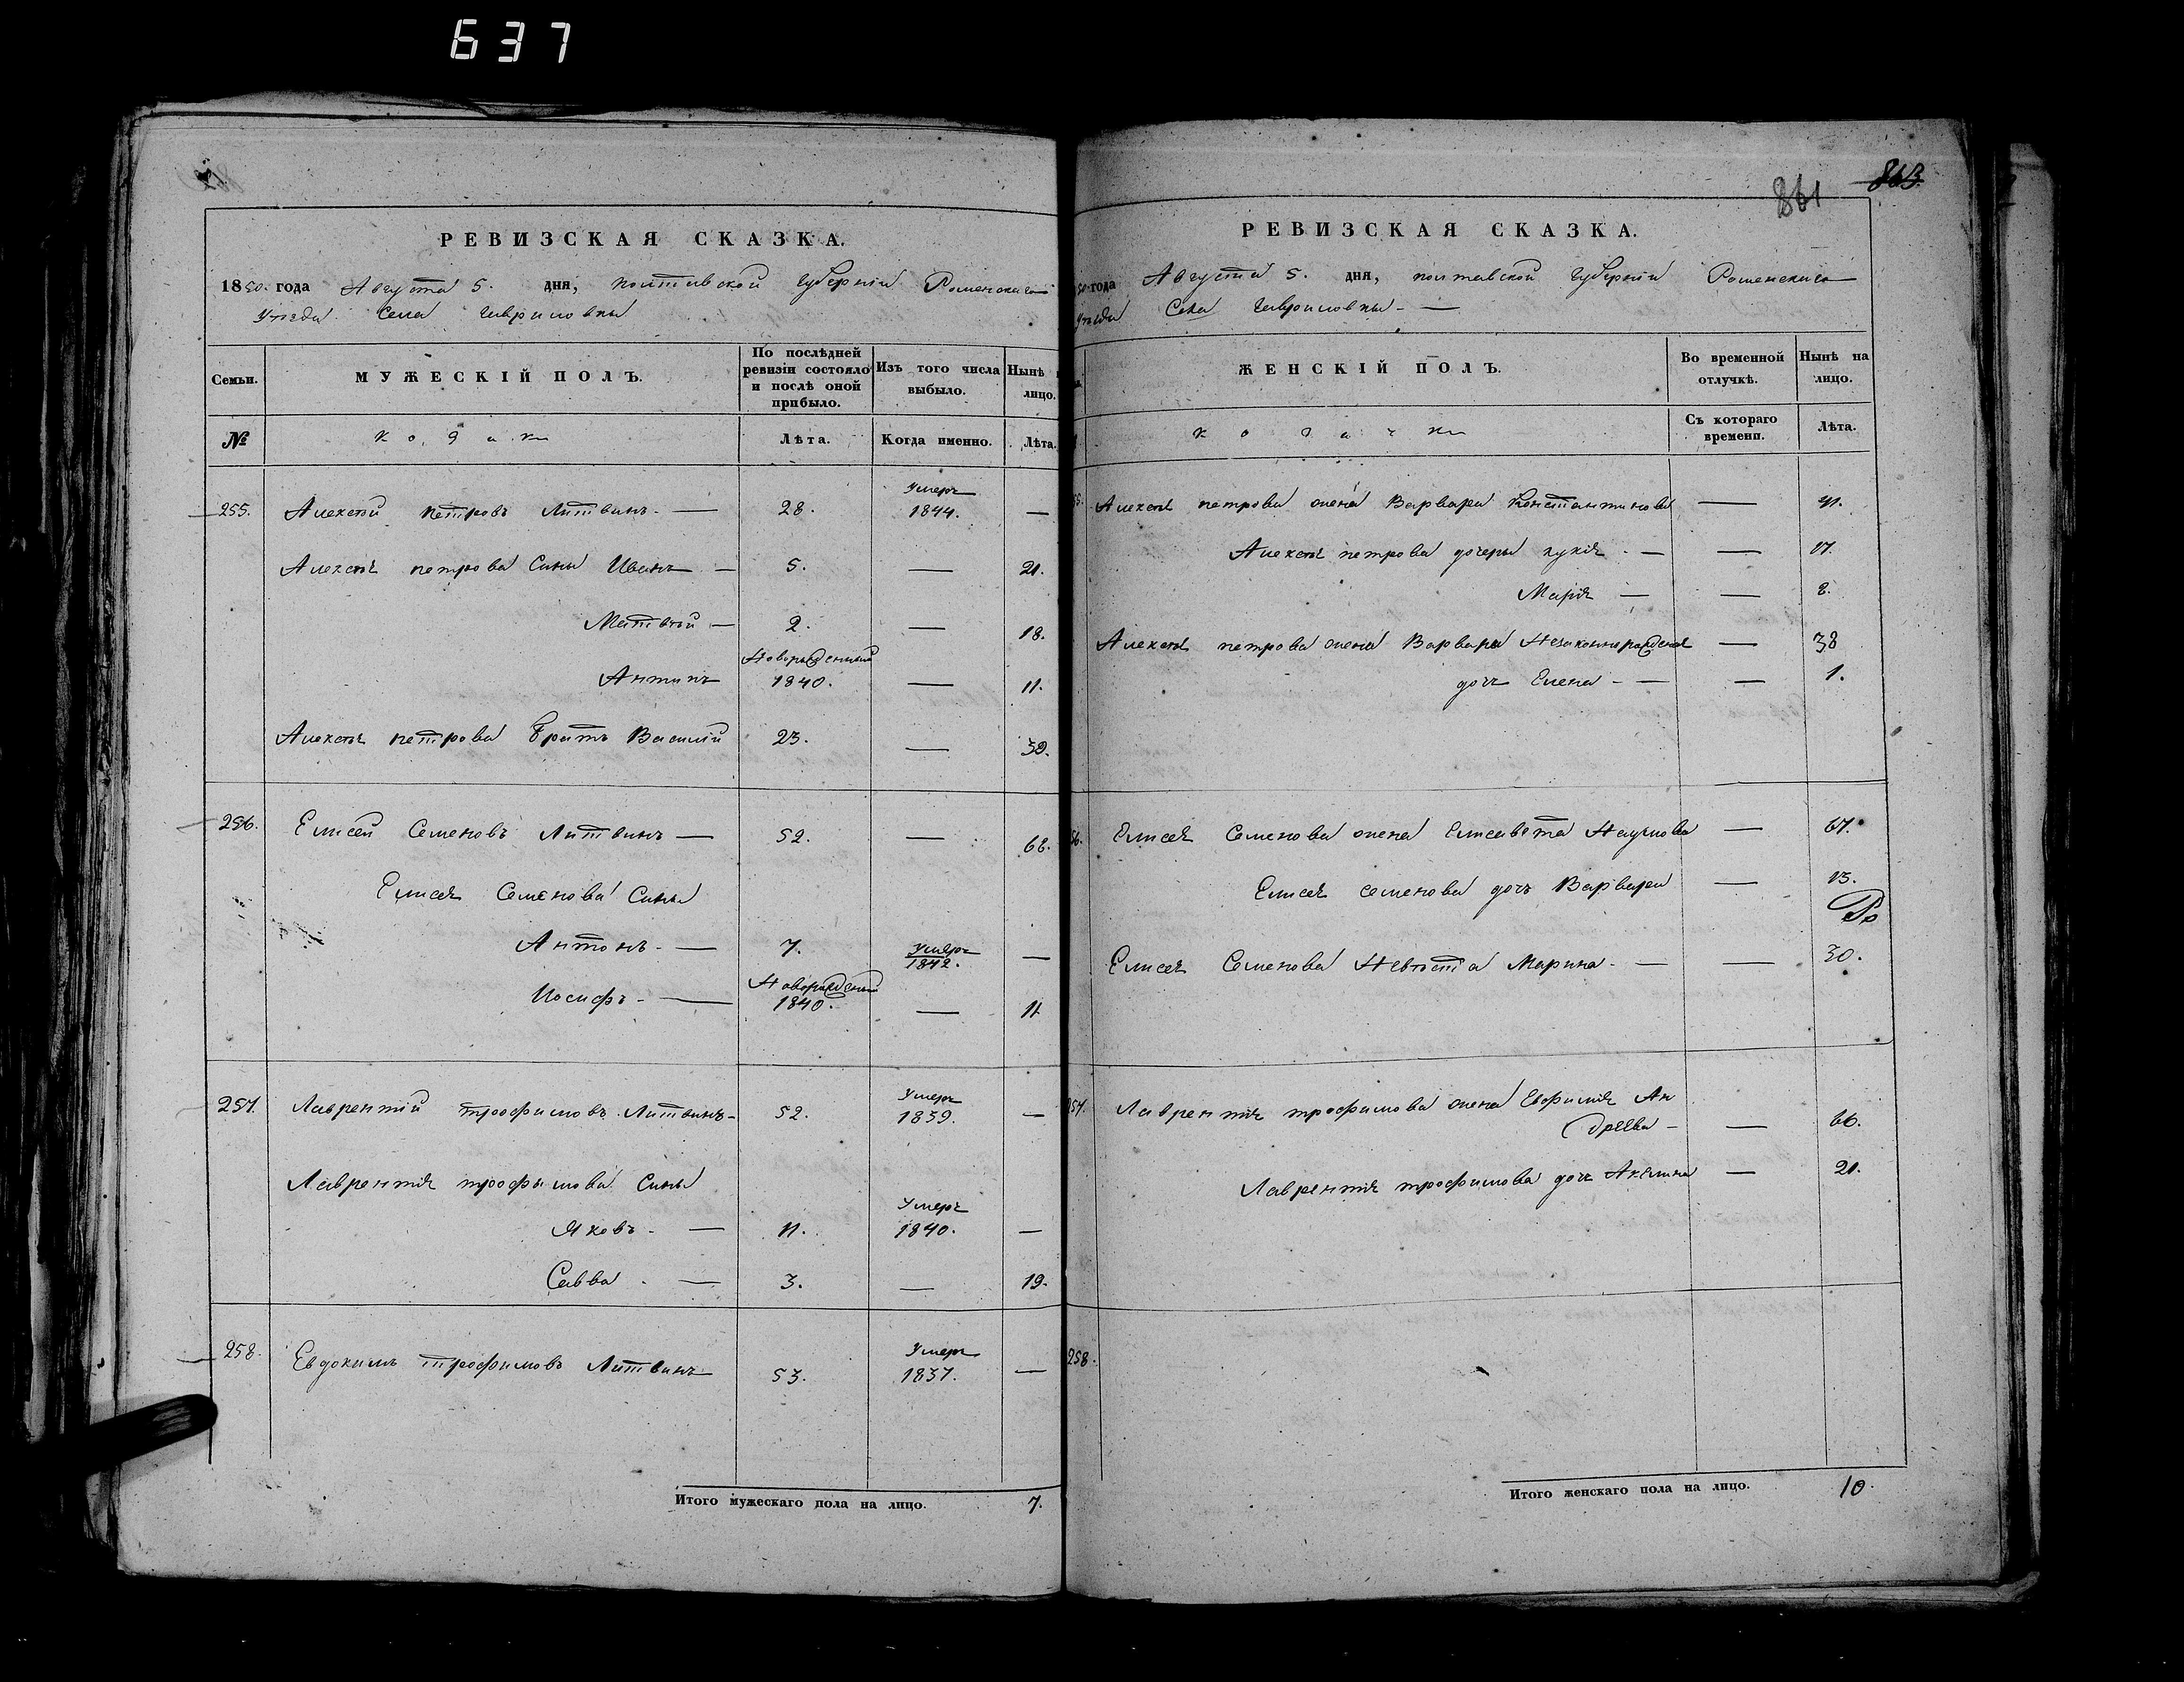 637
РЕВИЗСКАЯ СКАЗКА.
1850 года Августа 5. дня, полтавской губерніи Роменскаго
Уѣзда Села Гавриловки
Семьи.
МУЖЕСКІЙ ПОЛЪ.
По послѣдней ревизіи состояло и послѣ оной прибыло.
Изъ того числа выбыло.
Нынѣ
лицо.
№
козаки
Лѣта.
Когда именно.
Лѣта.
255. Алексѣй Петровъ Литвинъ. — 28. Умеръ 1844. —
Алексѣя петрова Сины Иванъ — 5. — 21.
Матвѣй — 2. — 18.
Антипъ Новорожденный 1840. — 11.
Алексѣя петрова братъ Василій 23. — 39.
256. Елисей Семеновъ Литвинъ — 52. — 68.
Елисея Семенова Сины
Антонъ. — 7. Умеръ 1842. —
Иосифъ. — Новорожденный 1840. — 11
257. Лаврентій трофимовъ Литвинъ — 52. Умеръ 1839. —
Лаврентія трофимова Сины
Яковъ. — 11. Умеръ 1840. —
Савва. — 3. — 19.
258. Евдокимъ трофимовъ Литвинъ 53. Умеръ 1837. —
Итого мужескаго пола на лицо. 7.
863
861
РЕВИЗСКАЯ СКАЗКА.
50 года Августа 5. дня, полтавской губерніи Роменскаго
Уѣзда Села Гавриловки. —
ЖЕНСКІЙ ПОЛЪ.
Во временной отлучкѣ.
Нынѣ на лицо.
козачки
Съ котораго времени.
Лѣта.
55. Алексѣя петрова жена Варвара Константинова — 41.
Алексѣя петрова дочери — 17.
Марія — — 8.
Алексѣя петрова жены Варвары Незаконнорожденная — 38
дочь Елена — — 1.
56. Елисея Семенова жена Елисавета Наумова — 67.
Елисея семенова дочь Варвара — 15.
Елисея Семенова Невѣста Марина. — — 30.
257. Лаврентія трофимова жена Евфимія Ан
дреева — — 66.
Лаврентія трофимова дочь Акелина — 21.
258.
Итого женскаго пола на лицо. 10.